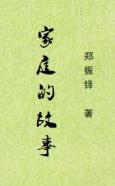 家庭的故事
郑振铎 著